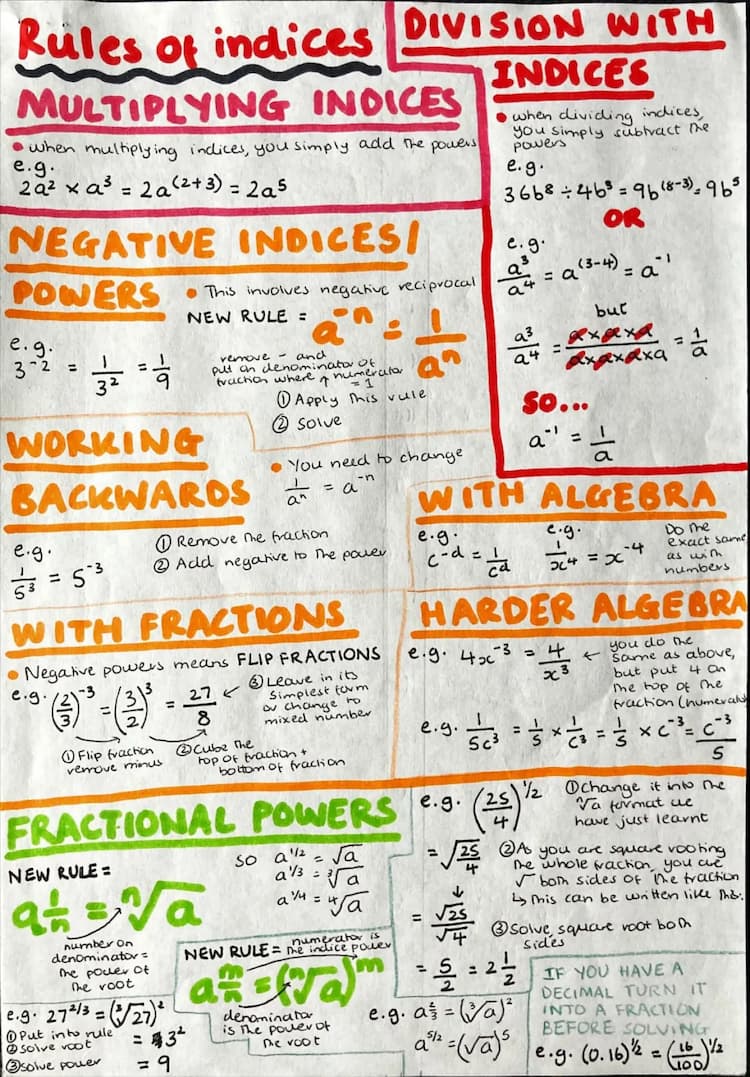 Rules of indices
MULTIPLYING INDICES
• when multiplying indices, you simply add the powers
e.g.
2a² × a³ = 2a⁽²⁺³⁾ = 2a⁵
DIVISION WITH
INDICES
• when dividing indices,
you simply subtract the
powers
e.g.
36b⁸ ÷ 4b³ = 9b⁽⁸⁻³⁾ = 9b⁵
OR
e.g.
a³/a⁴ = a⁽³⁻⁴⁾ = a⁻¹
but
a³/a⁴ = a×a×a/a×a×a×a = 1/a
SO...
a⁻¹ = 1/a
NEGATIVE INDICES/
POWERS
• This involves negative reciprocal
NEW RULE = a⁻ⁿ = 1/aⁿ
e.g.
3⁻² = 1/3² = 1/9
remove - and
put an denominator of
fraction where numerator
= 1
① Apply this rule
② Solve
WORKING
BACKWARDS
• You need to change
1/aⁿ = a⁻ⁿ
e.g.
1/5³ = 5⁻³
① Remove the fraction
② Add negative to the power
WITH ALGEBRA
e.g.
c⁻ᵈ = 1/cᵈ
e.g.
1/x⁴ = x⁻⁴
Do the
exact same
as with
numbers
WITH FRACTIONS
• Negative powers means FLIP FRACTIONS
e.g. (2/3)⁻³ = (3/2)³ = 27/8
③ Leave in its
simplest form
or change to
mixed number
① Flip fraction
remove minus
② Cube the
top of fraction +
bottom of fraction
HARDER ALGEBRA
e.g. 4x⁻³ = 4/x³
you do the
same as above,
but put 4 on
the top of the
fraction (numerator)
e.g. 1/5c³ = 1/5 × 1/c³ = 1/5 × c⁻³ = c⁻³/5
FRACTIONAL POWERS
NEW RULE =
a^1/n = ⁿ√a
number on
denominator =
the power of
the root
so a^1/2 = √a
a^1/3 = ³√a
a^1/4 = ⁴√a
e.g. 27^2/3 = (³√27)²
① Put into rule
② solve root = 3²
③ solve power = 9
NEW RULE = numerator is
the indice power
a^m/n = (ⁿ√a)^m
denominator
is the power of
the root
e.g. (25/4)^1/2
① Change it into the
ⁿ√a format we
have just learnt
= √25/4
② As you are square rooting
the whole fraction, you are
√ both sides of the fraction
↳ This can be written like this.
= √25/√4
③ Solve, square root both
sides
= 5/2 = 2 1/2
e.g. a^2/3 = (³√a)²
a^5/2 = (√a)⁵
IF YOU HAVE A
DECIMAL TURN IT
INTO A FRACTION
BEFORE SOLVING
e.g. (0.16)^1/2 = (16/100)^1/2